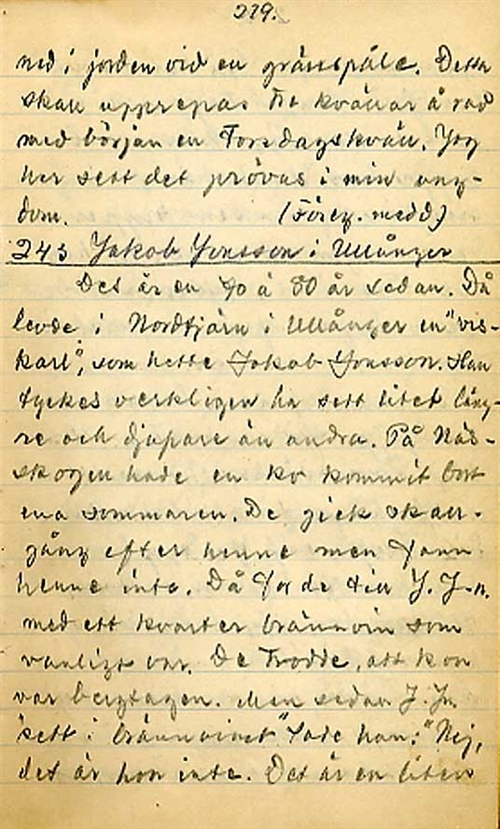 219.
ned i jorden vid en grässpåle. Detta
skall upprepas tre kvällar å rad
med början en Torsdagskväll. Jag
har sett det prövas i min ung-
dom. (Föreg. medd)
243 Jakob Jonsson i Ullånger
Det är en 70 à 80 år sedan. Då
levde i Nordtjärn i Ullånger en "vis-
karl", som hette Jakob Jonsson. Han
tyckes verkligen ha sett litet läng-
re och djupare än andra. På Näs-
skogen hade en ko kommit bort
ena sommaren. De gick skall-
gång efter henne men fann
henne inte. Då for de till J. J-n.
med ett kvarter brännvin som
vanligt var. De trodde, att kon
var bergtagen. Men sedan J. Jn.
"sett i brännvinet" sade han: "Nej,
det är hon inte. Det är en liten